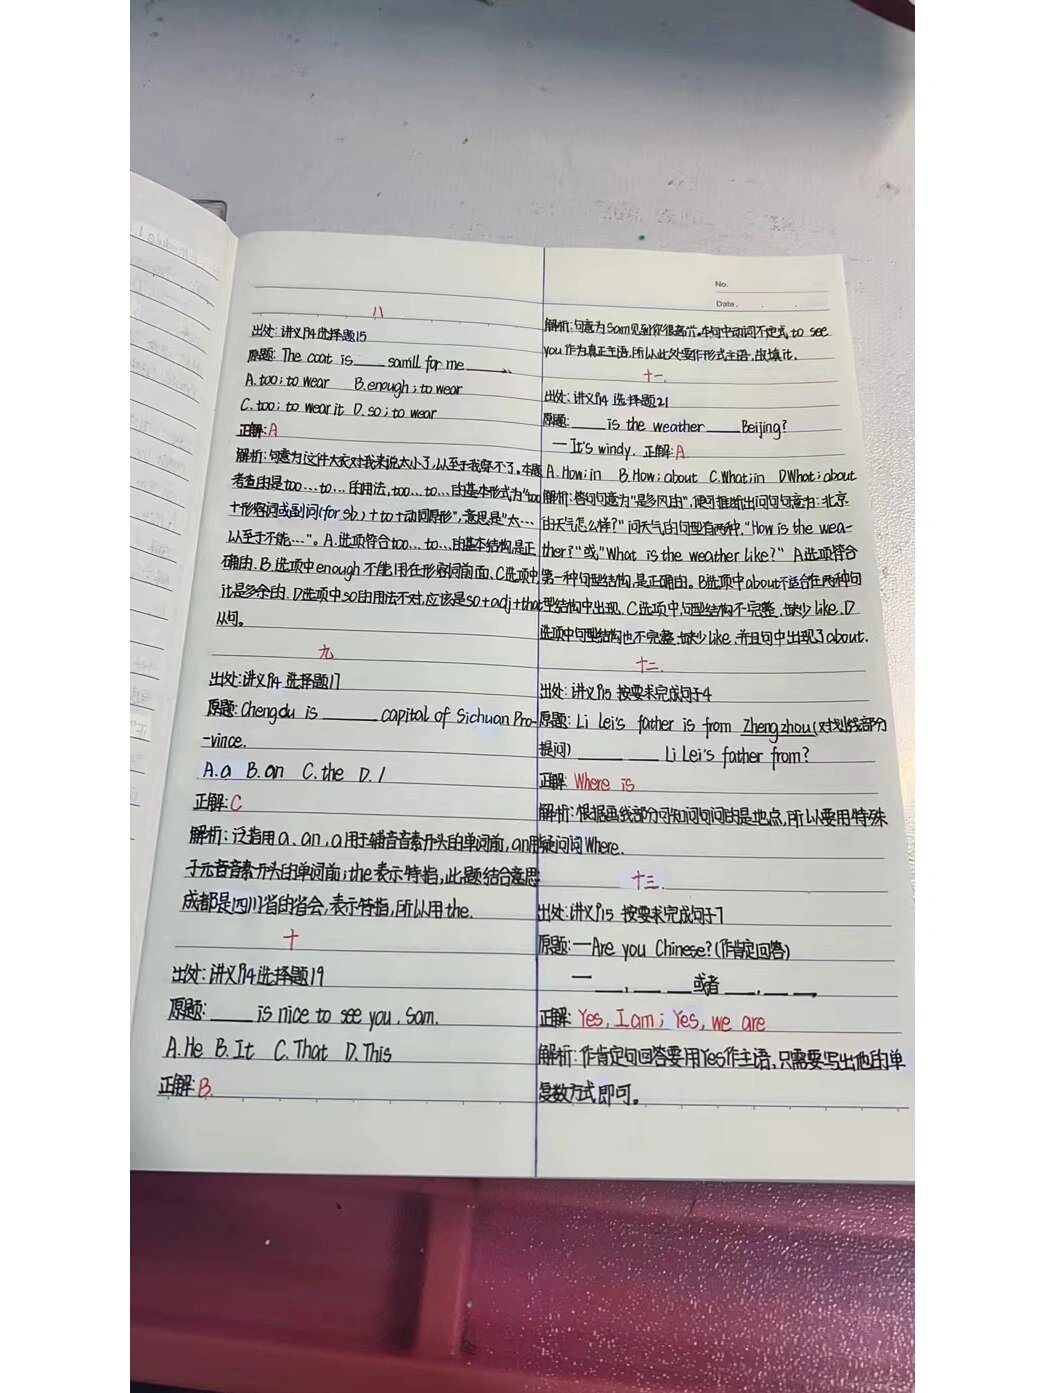 八
出处:讲义P14选择题15
原题: The coat is ___ samill for me ___.
A. too; to wear B. enough; to wear
C. too; to wear it D. so; to wear
正解:A
解析:句意为这件大衣对我来说太小了,以至于我穿不了。本题
考查的是too…to…的用法,too…to…的基本形式为“too
+形容词或副词(for sb)+to+动词原形”,意思是“太…
以至于不能…”。A.选项符合too…to…的基本结构是正
确的.B.选项中enough不能用在形容词前面.C选项中
it是多余的.D选项中so的用法不对,应该是so+adj+that
从句。
九
出处:讲义P14 选择题17
原题:Chengdu is ___ capital of Sichuan Pro-
-vince.
A.a B.an C.the D./
正解:C
解析:泛指用a、an,a用于辅音音素开头的单词前,an用
于元音音素开头的单词前;the表示特指,此题结合意思
成都是四川省的省会,表示特指,所以用the.
十
出处:讲义P14选择题19
原题:___ is nice to see you, Sam.
A.He B.It C.That D.This
正解:B.
No.
Date.
解析:句意为Sam见到你很高兴.本句中动词不定式to see
you作为真正主语,所以此处要作形式主语,故填it.
十一.
出处:讲义P14 选择题21
原题:___ is the weather ___ Beijing?
—It's windy. 正解:A
A.How;in B.How;about C.What;in D What;about
解析:答句句意为“是多风的”,便可推断出问句句意为:北京
的天气怎么样?”问天气的句型有两种,“How is the wea-
ther?”或“What is the weather like?” A选项符合
第一种句型结构,是正确的。B选项中about不适合在两种句
型结构中出现.C选项中,句型结构不完整,缺少like.D
选项中句型结构也不完整,缺少like,并且句中出现了about.
十二.
出处:讲义P15 按要求完成句子4
原题:Li Lei's father is from Zhengzhou(对划线部分
提问) ___ ___ Li Lei's father from?
正解: Where is
解析:根据画线部分可知问句问的是地点,所以要用特殊
疑问词Where.
十三.
出处:讲义P15 按要求完成句子7
原题:—Are you Chinese?(作肯定回答)
— ___, ___ ___或者___, ___ ___
正解: Yes, I am; Yes, we are
解析:作肯定句回答要用Yes作主语,只需要写出他的单
复数方式即可。